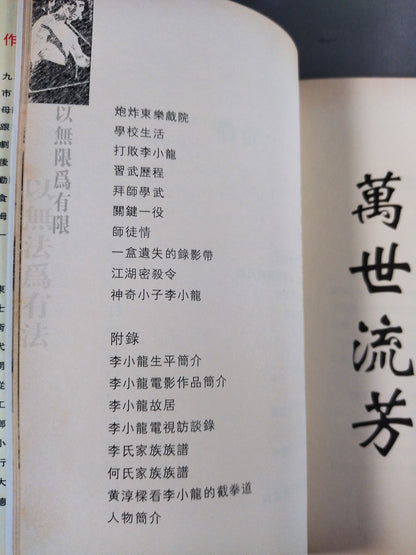 炮炸東樂戲院
學校生活
打敗李小龍
習武歷程
拜師學武
關鍵一役
師徒情
一盒遺失的錄影帶
江湖密殺令
神奇小子李小龍
附錄
李小龍生平簡介
李小龍電影作品簡介
李小龍故居
李小龍電視訪談錄
李氏家族族譜
何氏家族族譜
黃淳樑看李小龍的截拳道
人物簡介
以無限爲有限
以無法爲有法
萬世流芳
作
九
市
母
跟
劇
後
勤
食
母
一
東
士
術
代
開
從
工
鄉
小
行
大